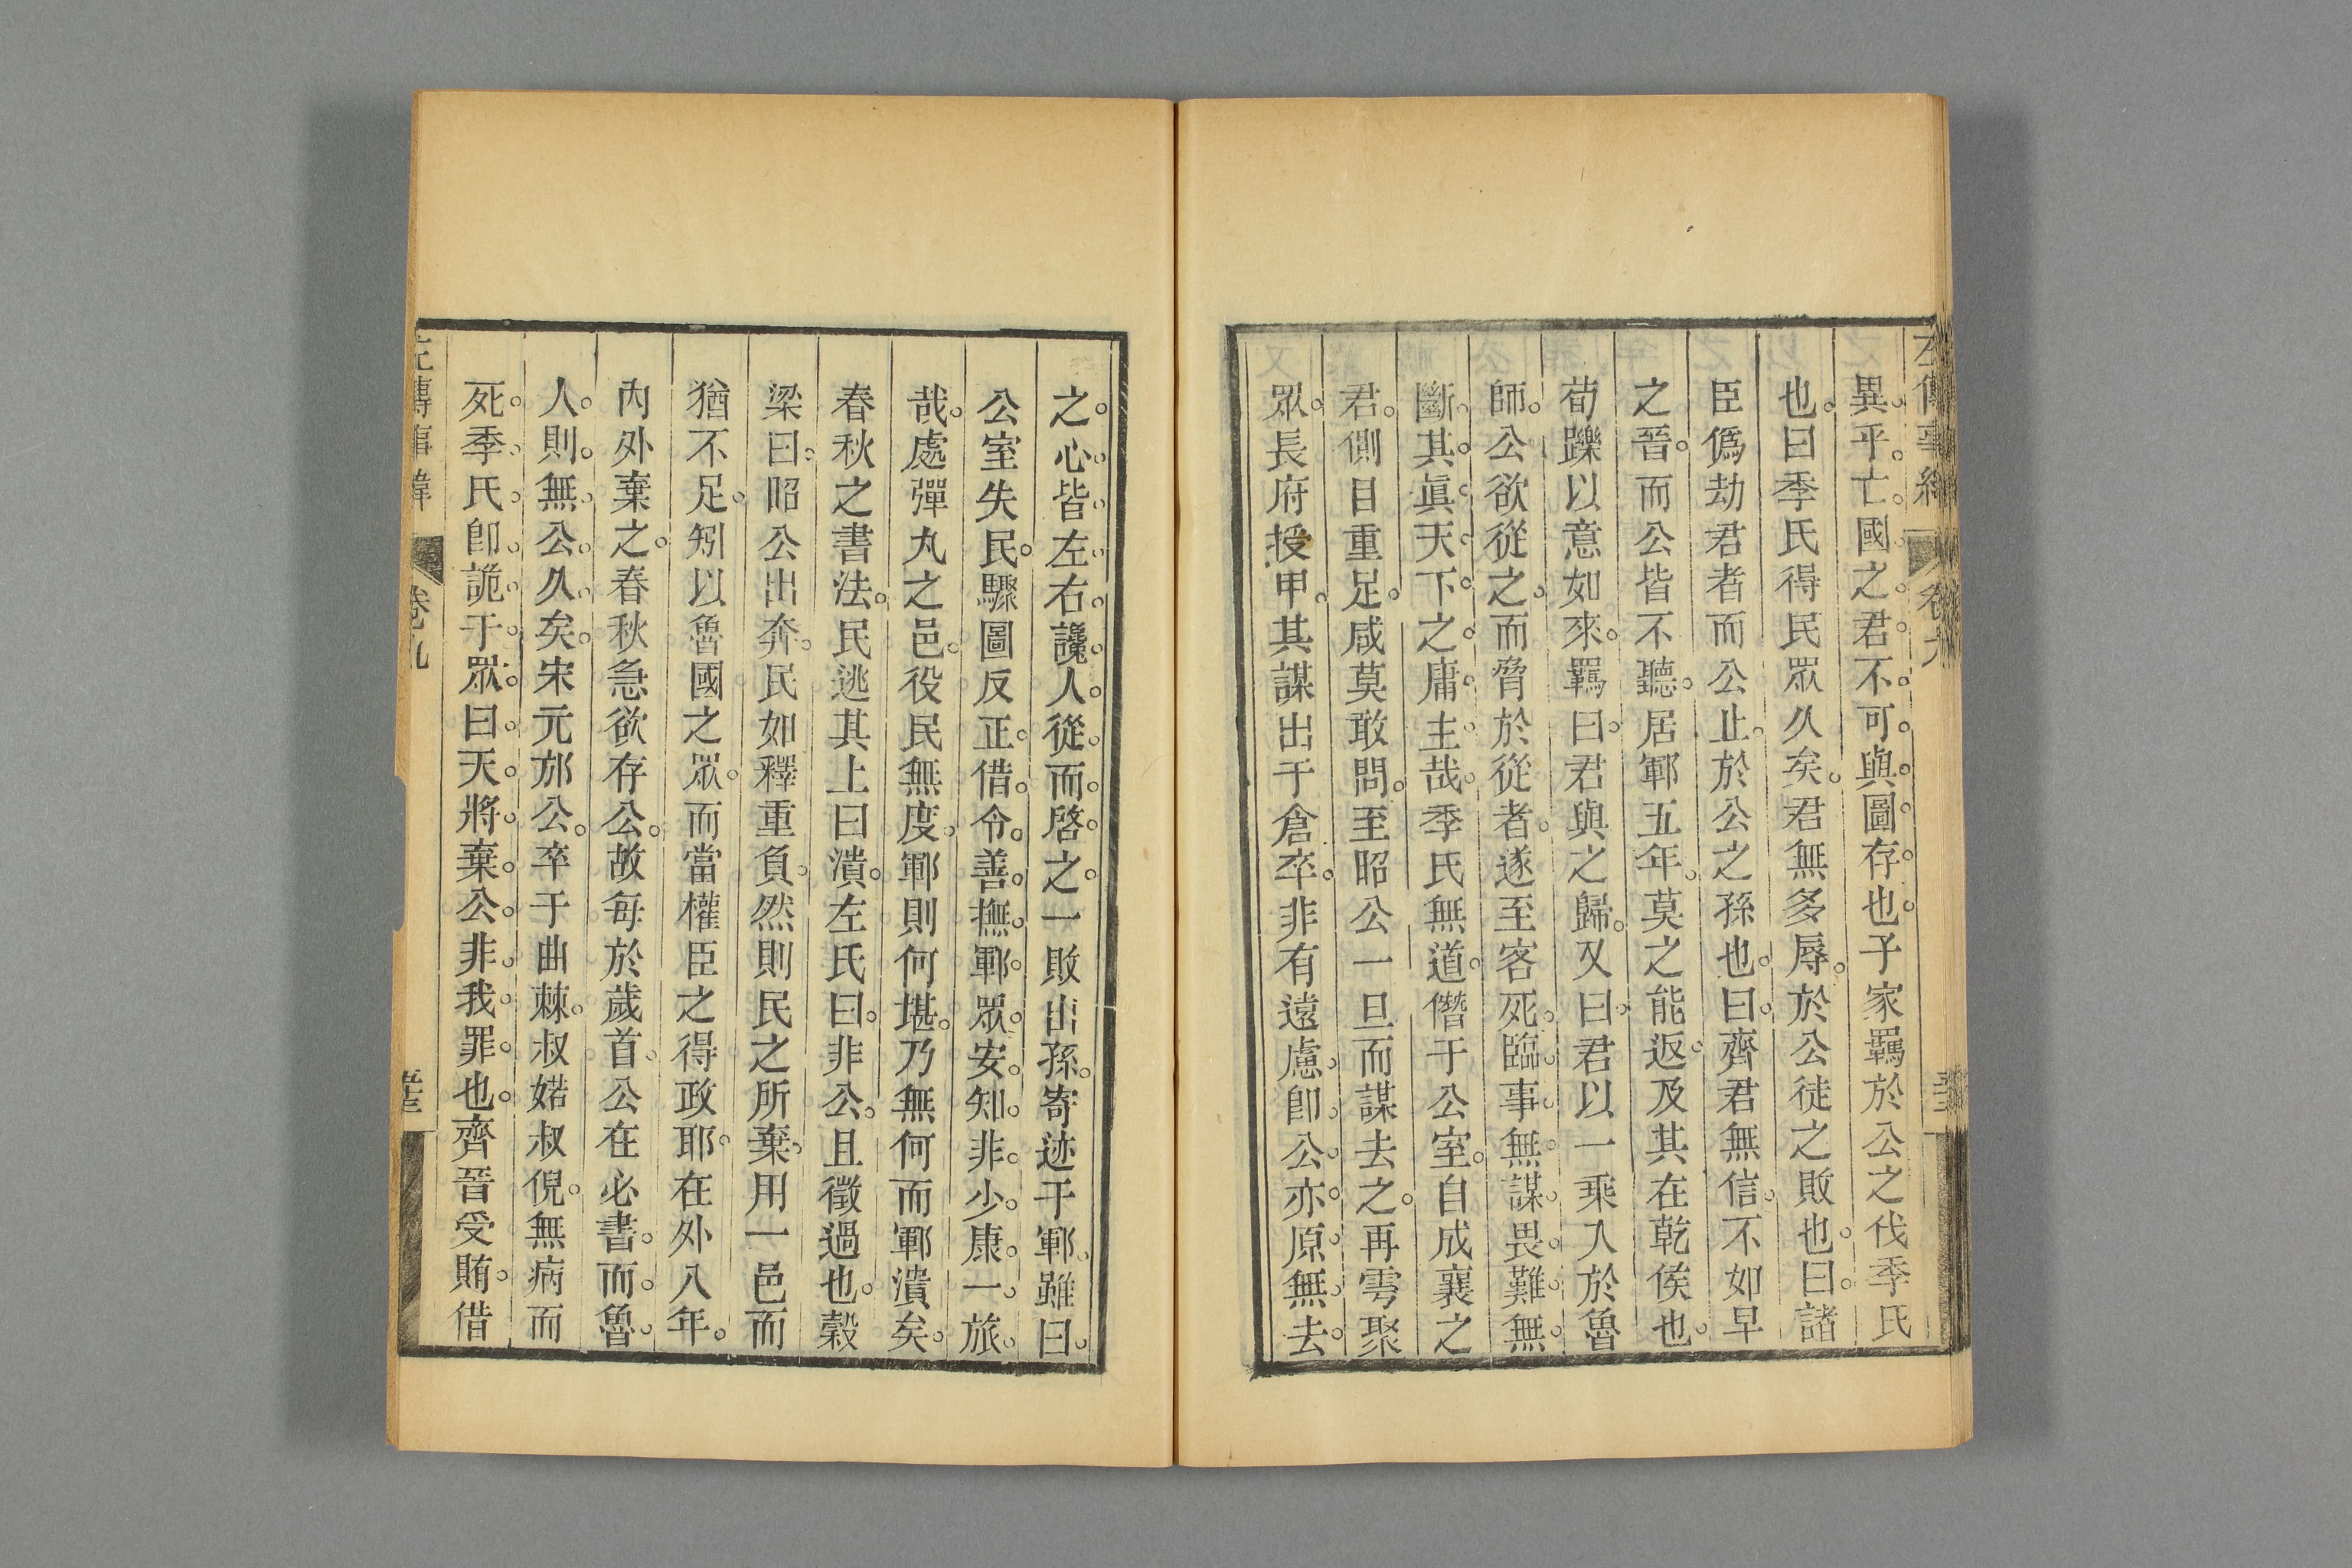 異乎亡國之君不可與圖存也子家羈於公之伐季氏
也曰季氏得民眾久矣君無多辱於公徒之敗也曰諸
臣僞劫君者而公止於公之孫也曰齊君無信不如早
之晉而公皆不聽居鄆五年莫之能返及其在乾侯也
荀躒以意如來羈曰君與之歸又曰君以一乘入於魯
師公欲從之而脅於從者遂至客死臨事無謀畏難無
斷其眞天下之庸主哉季氏無道僭于公室自成襄之
君側目重足咸莫敢問至昭公一旦而謀去之再雩聚
眾長府授甲其謀出于倉卒非有遠慮卽公亦原無去
之心皆左右讒人從而啓之一敗出孫寄迹于鄆雖曰
公室失民驟圖反正借令善撫鄆眾安知非少康一旅
哉處彈丸之邑役民無度鄆則何堪乃無何而鄆潰矣
春秋之書法民逃其上曰潰左氏曰非公且徵過也穀
梁曰昭公出奔民如釋重負然則民之所棄用一邑而
猶不足矧以魯國之眾而當權臣之得政耶在外八年
內外棄之春秋急欲存公故每於歲首公在必書而魯
人則無公久矣宋元邡公卒于曲棘叔婼叔倪無病而
死季氏卽詭于眾曰天將棄公非我罪也齊晉受賄借
左傳事緯
卷九